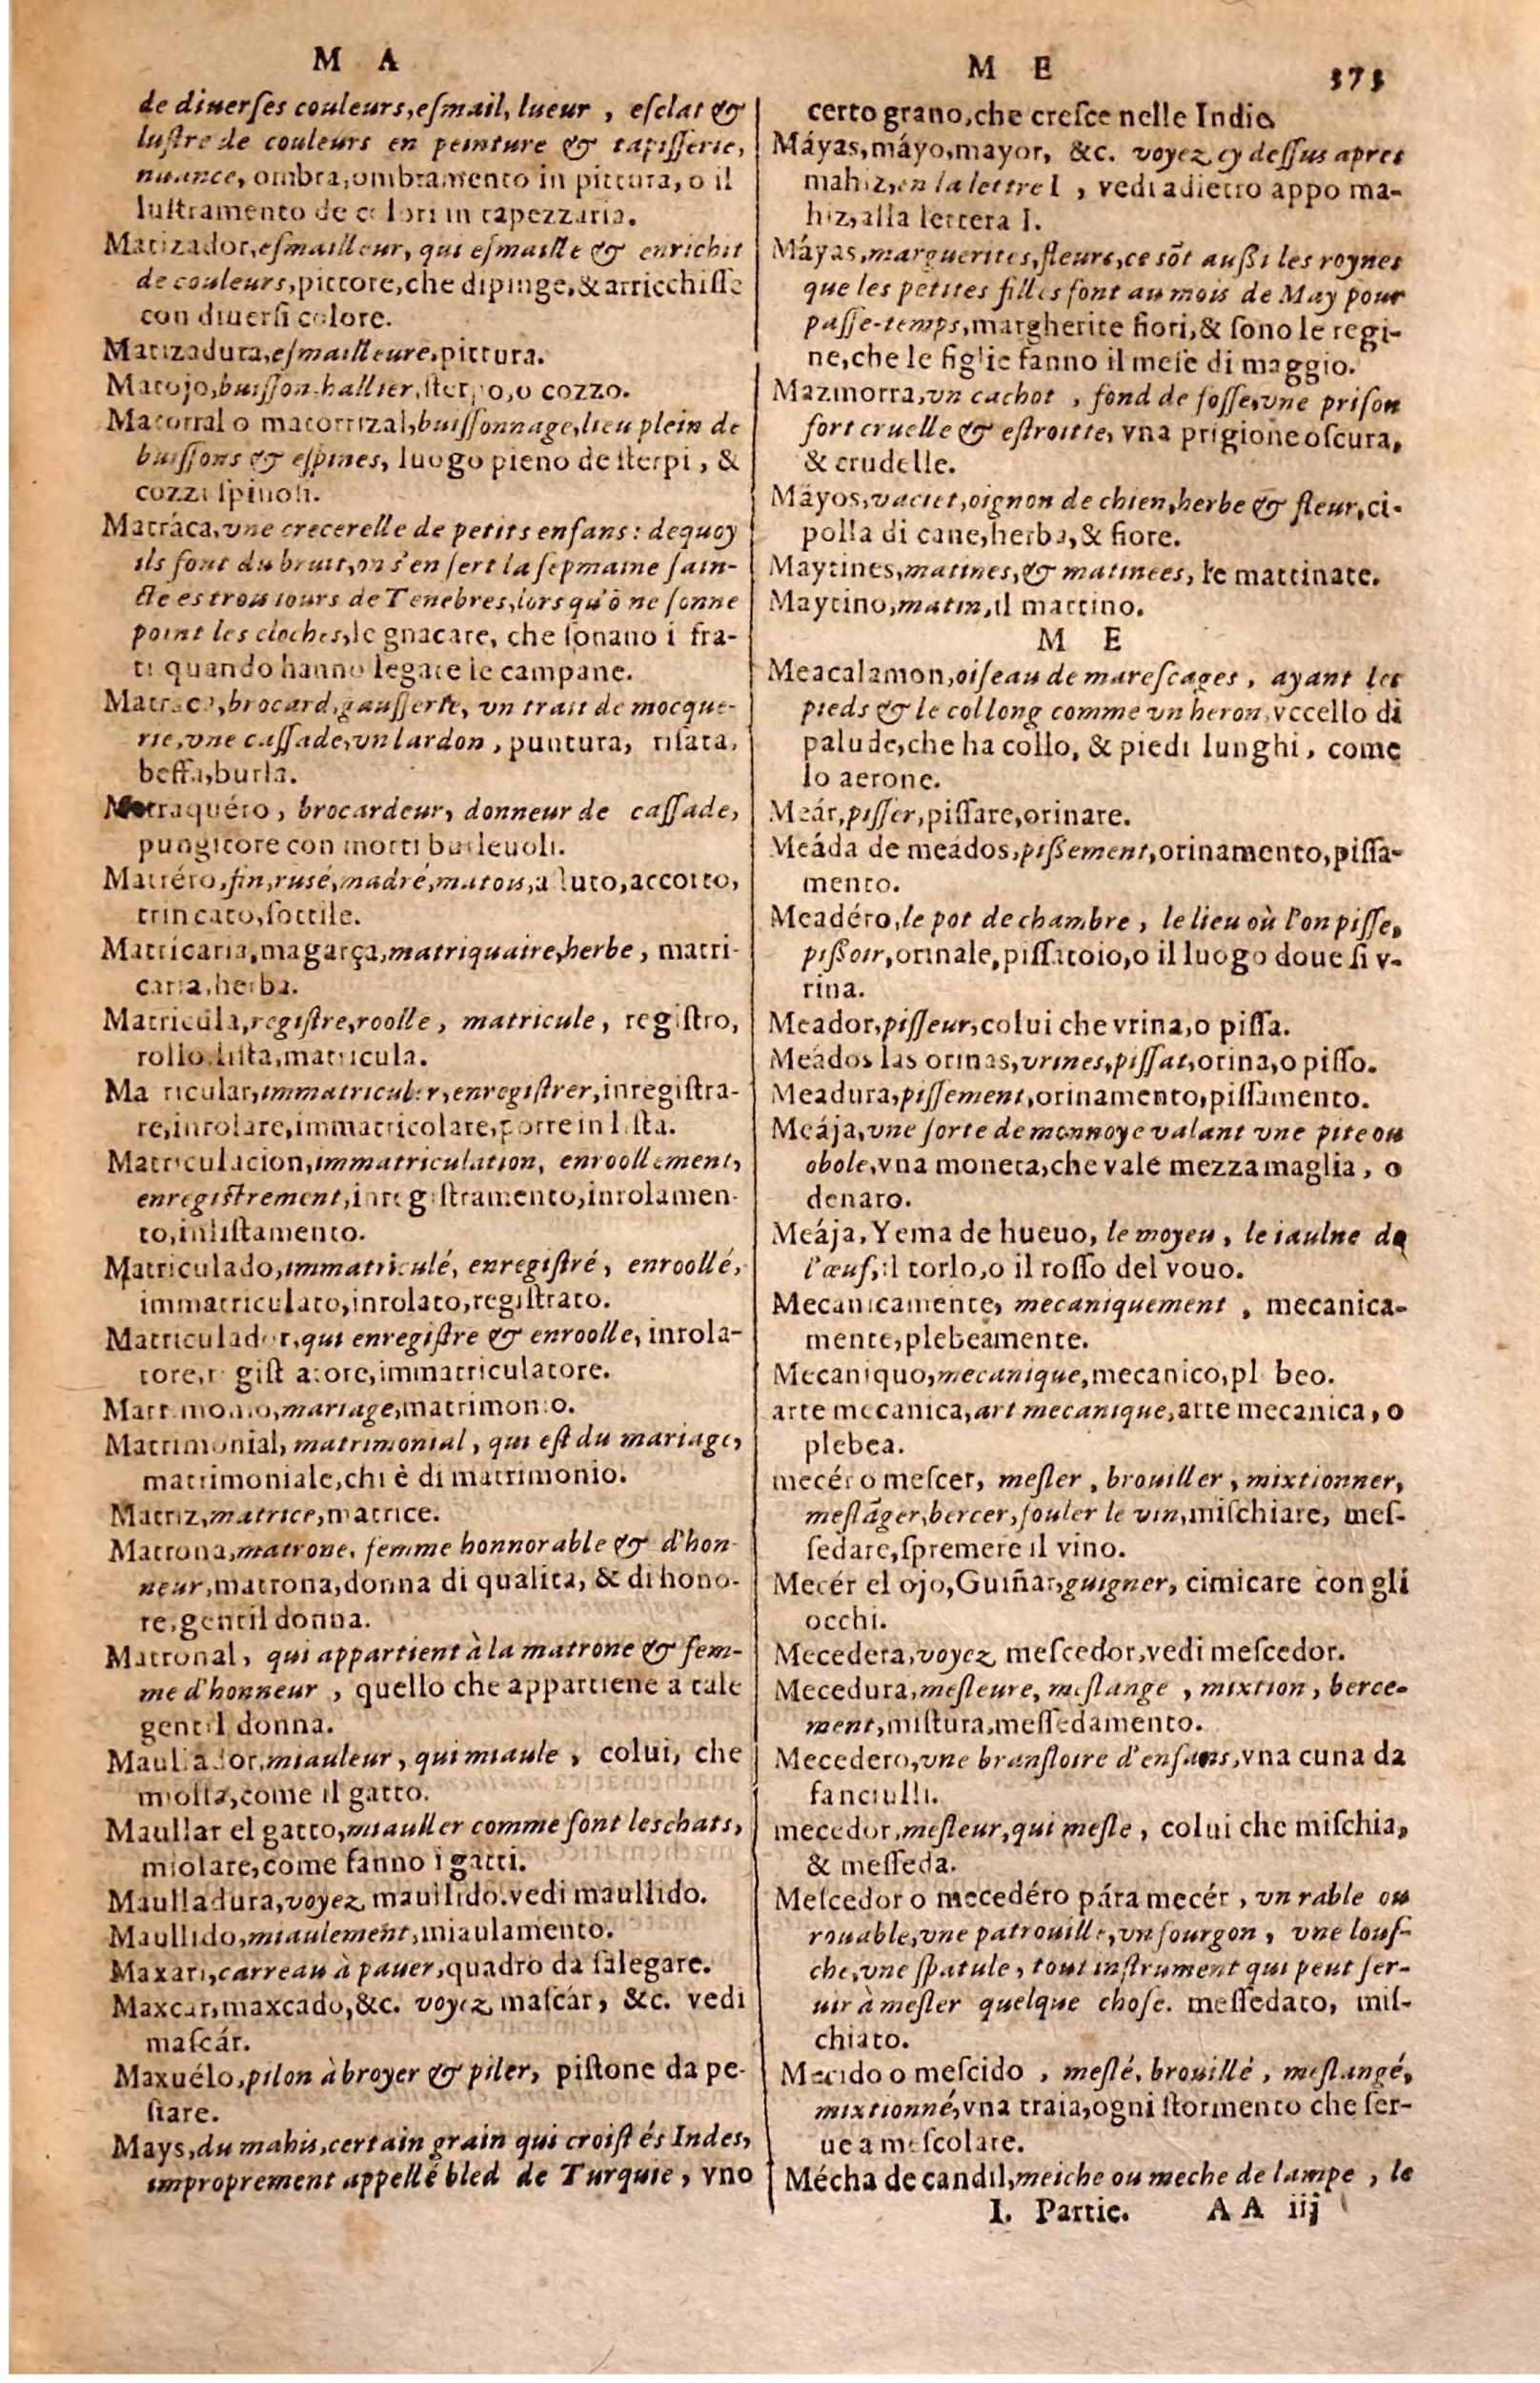 M A
de diuerſes couleurs, eſmail, lueur , eſclat &
luſtre de couleurs en peinture & tapiſſerie,
nuance, ombra, ombramento in pittura, o il
luſtramento de colori in tapezzaria.
Matizador, eſmailleur, qui eſmaille & enrichit
de couleurs, pittore, che dipinge, & arricchiſſe
con diuerſi colore.
Matizadura, eſmailleure, pittura.
Matojo, buiſſon, hallier, ſterpo, o cozzo.
Matorral o matorrizal, buiſſonnage, lieu plein de
buiſſons & eſpines, luogo pieno de ſterpi , &
cozzi ſpinoſi.
Matráca, vne crecerelle de petits enfans : dequoy
ils font du bruit, on s'en ſert la ſepmaine ſain-
cte es trois iours de Tenebres, lors qu'õ ne ſonne
point les cloches, le gnacare, che ſonano i fra-
ti quando hanno legate le campane.
Matraca, brocard, gauſſerie, vn trait de mocque-
rie, vne caſſade, vn lardon , puntura, riſata,
beffa, burla.
Matraquéro , brocardeur, donneur de caſſade,
pungitore con motti burleuoli.
Matréro, fin, ruſé, madré, matois, aſtuto, accorto,
trincato, ſottile.
Matricaria, magarça, matriquaire, herbe , matri-
caria, herba.
Matricula, regiſtre, roolle , matricule , regiſtro,
rollo liſta, matricula.
Ma ricular, immatriculer, enregiſtrer, inregiſtra-
re, inrolare, immatricolare, porre in liſta.
Matriculacion, immatriculation, enroollement,
enregiſtrement, inregiſtramento, inrolamen-
to, inliſtamento.
Matriculado, immatriculé, enregiſtré , enroollé,
immatriculato, inrolato, regiſtrato.
Matriculador, qui enregiſtre & enroolle, inrola-
tore, r giſt atore, immatriculatore.
Matrimonio, mariage, matrimonio.
Matrimonial, matrimonial , qui eſt du mariage,
matrimoniale, chi è di matrimonio.
Matriz, matrice, matrice.
Matrona, matrone, femme honnorable & d'hon-
neur, matrona, donna di qualita, & di hono-
re, gentil donna.
Matronal , qui appartient à la matrone & fem-
me d'honneur , quello che appartiene a tale
gentil donna.
Maullador, miauleur , qui miaule , colui, che
miolla, come il gatto.
Maullar el gatto, miauller comme font les chats,
miolare, come fanno i gatti.
Maulladura, voyez maullido. vedi maullido.
Maullido, miaulement, miaulamento.
Maxari, carreau à pauer, quadro da ſalegare.
Maxcar, maxcado, &c. voyez maſcar, &c. vedi
maſcár.
Maxuélo, pilon à broyer & piler, piſtone da pe-
ſtare.
Mays, du mahis, certain grain qui croiſt és Indes,
improprement appellé bled de Turquie , vno
M E 373
certo grano, che creſce nelle Indie.
Máyas, máyo, mayor, &c. voyez cy deſſus apres
mahiz, en la lettre I , vedi adietro appo ma-
hiz, alla lettera I.
Máyas, marguerites, fleurs, ce sõt auſſi les roynes
que les petites filles font au mois de May pour
paſſe-temps, margherite fiori, & ſono le regi-
ne, che le figlie fanno il meſe di maggio.
Mazmorra, vn cachot , fond de foſſe, vne priſon
fort cruelle & eſtroitte, vna prigione oſcura,
& crudelle.
Máyos, vaciet, oignon de chien, herbe & fleur, ci-
polla di cane, herba, & fiore.
Maytines, matines, & matinees, le mattinate.
Maytino, matin, il mattino.
M E
Meacalamon, oiſeau de mareſcages , ayant les
pieds & le col long comme vn heron, vccello di
palude, che ha collo, & piedi lunghi , come
lo aerone.
Meár, piſſer, piſſare, orinare.
Meáda de meádos, piſſement, orinamento, piſſa-
mento.
Meadéro, le pot de chambre , le lieu où l'on piſſe,
piſſoir, orinale, piſſatoio, o il luogo doue ſi v-
rina.
Meador, piſſeur, colui che vrina, o piſſa.
Meádos las orinas, vrines, piſſat, orina, o piſſo.
Meadura, piſſement, orinamento, piſſamento.
Meája, vne ſorte de monnoye valant vne pite ou
obole, vna moneta, che vale mezza maglia , o
denaro.
Meája, Yema de hueuo, le moyeu , le iaulne de
l'œuf, il torlo, o il roſſo del vouo.
Mecanicamente, mecaniquement , mecanica-
mente, plebeamente.
Mecaniquo, mecanique, mecanico, pl beo.
arte mecanica, art mecanique, arte mecanica , o
plebea.
mecér o meſcer, meſler , brouiller , mixtionner,
meſlãger, bercer, fouler le vin, miſchiare, meſ-
ſedare, ſpremere il vino.
Mecér el ojo, Guiñar, guigner, cimicare con gli
occhi.
Mecedera, voyez meſcedor, vedi meſcedor.
Mecedura, meſleure, meſlange , mixtion , berce-
ment, miſtura, meſſedamento.
Mecedero, vne branſloire d'enfans, vna cuna da
fanciulli.
mecedor, meſleur, qui meſle , colui che miſchia,
& meſſeda.
Meſcedor o mecedéro pára mecér , vn rable ou
rouable, vne patrouille, vn fourgon , vne louſ-
che, vne ſpatule , tout inſtrument qui peut ſer-
uir à meſler quelque choſe. meſſedato, miſ-
chiato.
Mecido o meſcido , meſlé, brouillé , meſlangé,
mixtionné, vna traia, ogni ſtormento che ſer-
ue a meſcolare.
Mécha de candil, meiche ou meche de lampe , le
I. Partie. A A iij